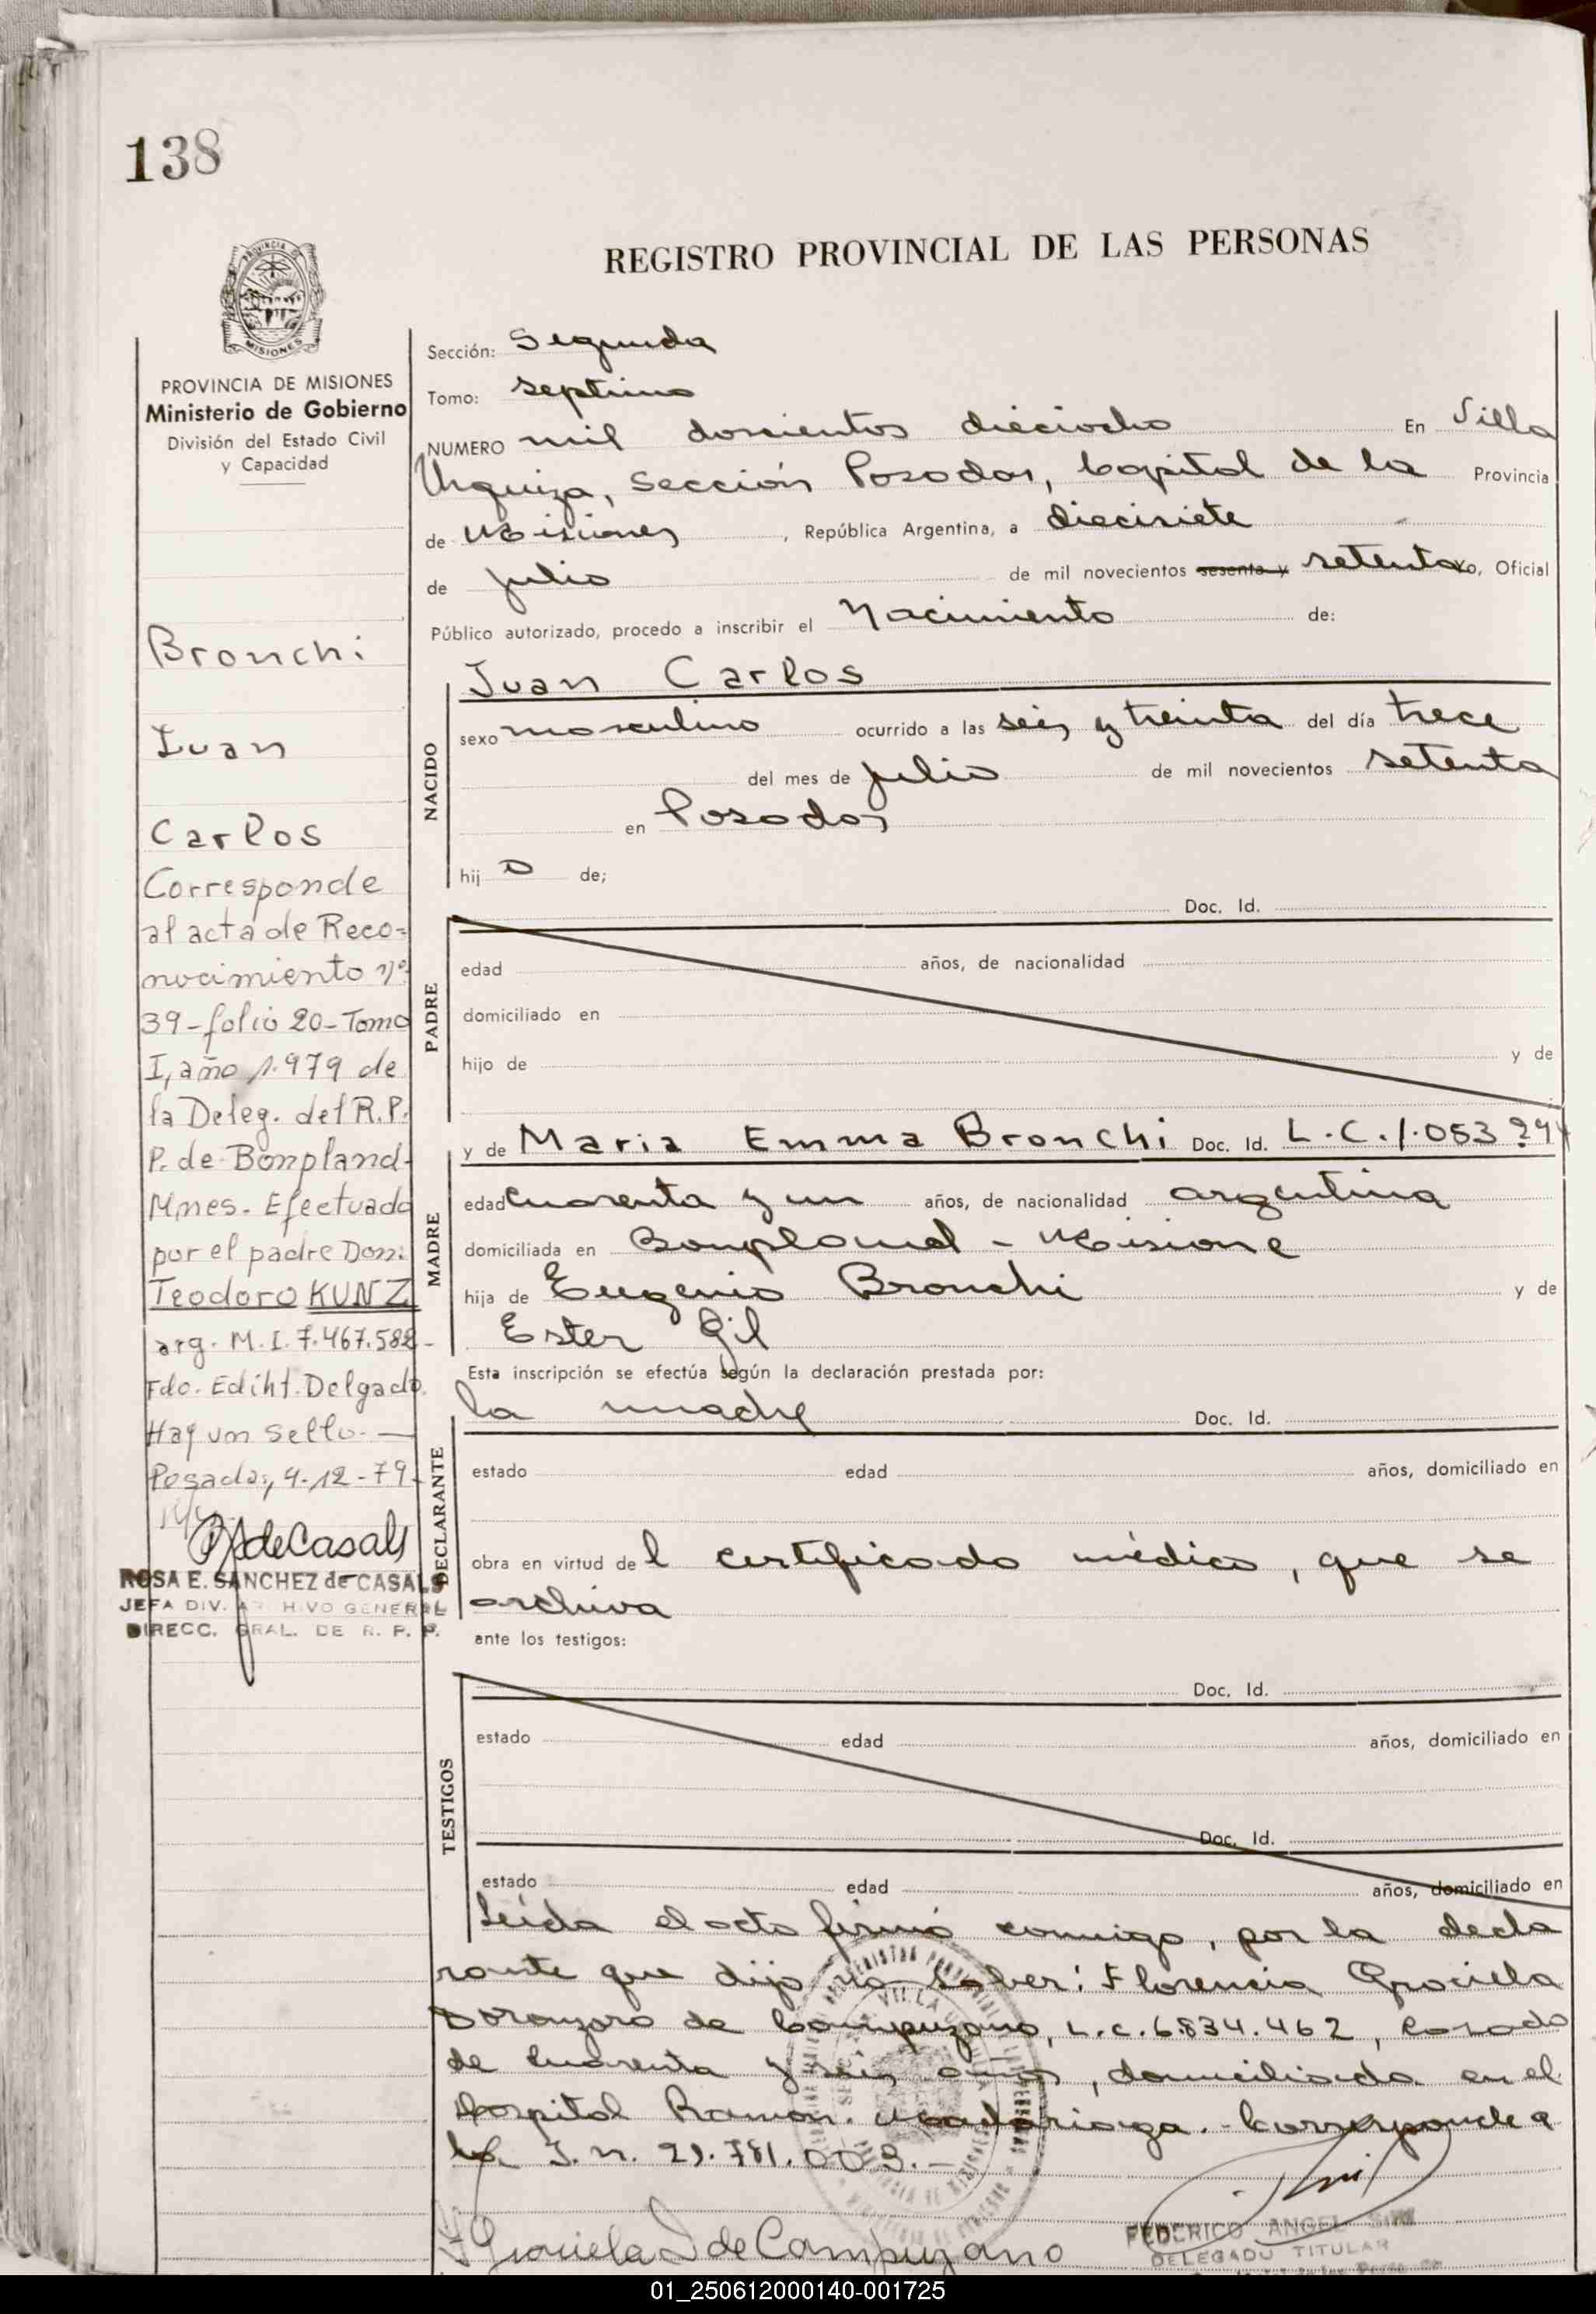 138
REGISTRO PROVINCIAL DE LAS PERSONAS
PROVINCIA DE MISIONES
Ministerio de Gobierno
División del Estado Civil
y Capacidad
Bronchi
Juan
Carlos
Corresponde
al acta de Reco=
nocimiento nº
39-folio 20-Tomo
I, año 1.979 de
la Deleg. del R.P.
P. de Bonpland-
Mnes. Efectuado
por el padre Don:
Teodoro KUNZ
arg. M.I. 7.467.582-
Fdo. Ediht. Delgado.
Hay un sello.-
Posadas, 4-12-79-
deCasals
ROSA E. SANCHEZ de CASALS
JEFA DIV. ARCHIVO GENERAL
DIRECC. GRAL. DE R. P. P.
Sección: Segunda
Tomo: septimo
NUMERO mil doscientos dieciocho En Villa
Urquiza, Sección Posadas, Capital de la Provincia
de Misiones, República Argentina, a diecisiete
de julio de mil novecientos sesenta y setenta yo, Oficial
Público autorizado, procedo a inscribir el Nacimiento de:
NACIDO
Juan Carlos
sexo masculino ocurrido a las seis y treinta del día trece
del mes de julio de mil novecientos setenta
en Posadas
hij o de;
PADRE
Doc. Id.
edad años, de nacionalidad
domiciliado en
hijo de y de
MADRE
y de Maria Emma Bronchi Doc. Id. L.C. 1.053
edad cuarenta y un años, de nacionalidad argentina
domiciliada en Bonpland - Misione
hija de Eugenio Bronchi y de
Ester Gil
Esta inscripción se efectúa según la declaración prestada por:
DECLARANTE
la madre Doc. Id.
estado edad años, domiciliado en
obra en virtud de l certificado médico, que se
archiva
ante los testigos:
TESTIGOS
Doc. Id.
estado edad años, domiciliado en
Doc. Id.
estado edad años, domiciliado en
Leída el acta firmó conmigo, por la decla
rante que dijo no saber: Florencia Graciela
de Campuzano, L.C. 6.834.462, casada
de cuarenta y seis años, domiciliada en el
hospital Ramon Madariaga. Corresponde a
la I.n. 21.781.003.-
Graciela D de Campuzano
FEDERICO ANGEL
DELEGADO TITULAR
01_250612000140-001725